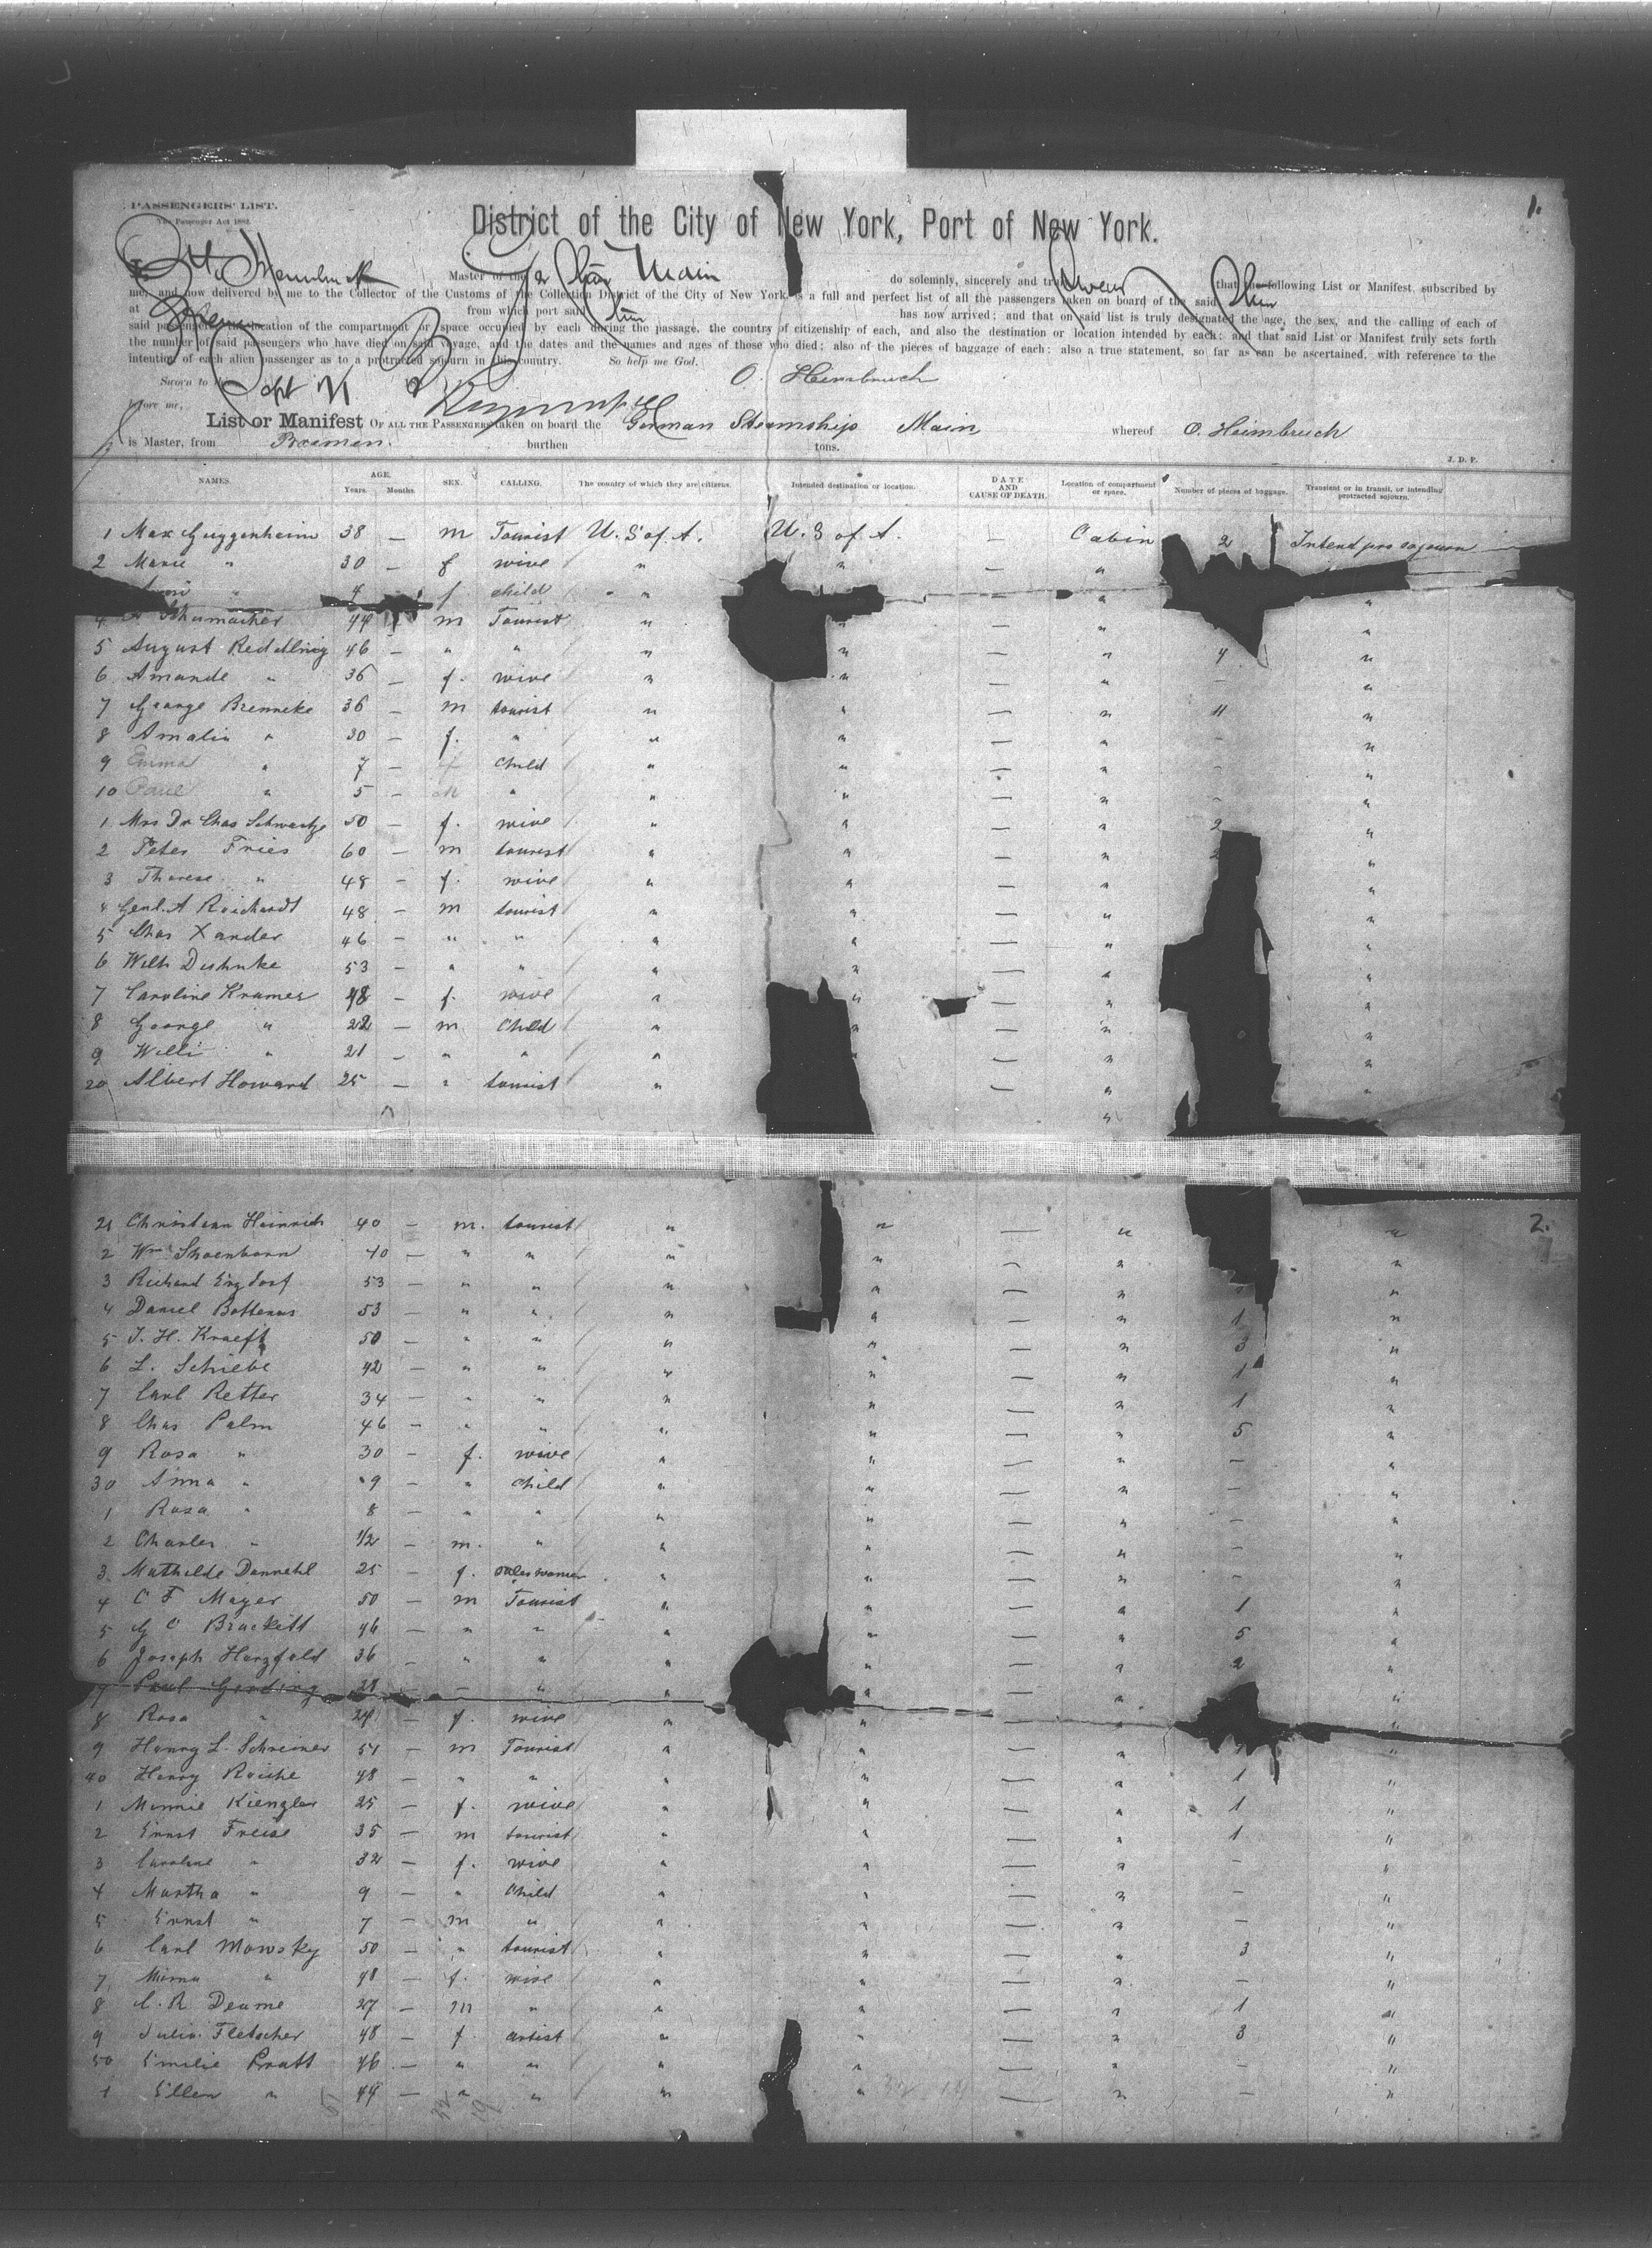 1.
PASSENGERS' LIST.
The Passenger Act 1882.
District of the City of New York, Port of New York.
I, Otto Heimbruch Master of the Main do solemnly, sincerely and truly swear that the following List or Manifest, subscribed by
me, and now delivered by me to the Collector of the Customs of the Collection District of the City of New York, is a full and perfect list of all the passengers taken on board of the said
at Bremen from which port said has now arrived; and that on said list is truly designated the age, the sex, and the calling of each of
said passengers, the location of the compartment or space occupied by each during the passage, the country of citizenship of each, and also the destination or location intended by each; and that said List or Manifest truly sets forth
the number of said passengers who have died on said voyage, and the dates and the names and ages of those who died; also of the pieces of baggage of each; also a true statement, so far as can be ascertained, with reference to the
intention of each alien passenger as to a protracted sojourn in this country. So help me God.
Sworn to this Sept 21 O. Heimbruch
before me,
List or Manifest OF ALL THE PASSENGERS taken on board the German Steamship Main whereof O. Heimbruch
is Master, from Bremen. burthen tons.
J. D. P.
NAMES. AGE. Years. Months. SEX. CALLING. The country of which they are citizens. Intended destination or location. DATE AND CAUSE OF DEATH. Location of compartment or space. Number of pieces of baggage. Transient or in transit, or intending protracted sojourn.
1 Max Guggenheim 38 — m Tourist U. S. of A. U. S of A. — Cabin 2 Intend pro sojourn
2 Marie " 30 — f wive " " — " "
" 4 f. child " — " "
4 A Schumacher 44 m Tourist " " — " "
5 August Reddling 46 — " " " " — " 4 "
6 Amande " 36 — f. wive " " — " — "
7 George Brenneke 36 — m tourist " " — " 11 "
8 Amalia " 30 — f. " " " — " — "
9 Emma " 7 — f child " " — " — "
10 Paul " 5 — M " " " — " — "
1 Mrs Dr Chas Schwartze 50 — f. wive " " — " 2 "
2 Peter Fries 60 — m tourist " " — " 2 "
3 Therese " 48 — f. wive " " — " "
4 Genl. A Reichardt 48 — m tourist " " — " "
5 Chas Xander 46 — " " " " — " "
6 Wilh Dushnke 53 — " " " " — " "
7 Caroline Kramer 48 — f. wive " " — " "
8 George " 22 — m child " " — " "
9 Willi " 21 — " " " — " "
20 Albert Howard 25 — " tourist " — " "
"
2.
21 Christian Heinrich 40 — m. tourist " " — " "
2 Wm Shoenborn 40 — " " " " — " "
3 Richard Engdorf 53 — " " " " — " "
4 Daniel Bottenus 53 — " " " " — " 1 "
5 J. H. Kraeft 50 — " " " " — " 3 "
6 L. Schiebe 42 — " " " " — " 1 "
7 Carl Retter 34 — " " " " — " 1 "
8 Chas Palm 46 — " " " " — " 5 "
9 Rosa " 30 — f. wive " " — " — "
30 Anna " 9 — " child " " — " — "
1 Rosa " 8 — " " " " — " — "
2 Charles " 1/2 — m. " " " — " — "
3 Mathilde Dannehl 25 — f. saleswoman " " — " — "
4 C F Mayer 50 — m Tourist " " — " 1 "
5 G C Brackett 46 — " " " " — " 5 "
6 Joseph Herzfeld 36 — " " " " — " 2 "
7 Paul Gerding 28 — " " " " — " "
8 Rosa " 24 — f. wive " " — " "
9 Henry L. Schreiner 51 — m Tourist " " — " 1 "
40 Henry Reiche 48 — " " " " — " 1 "
1 Minnie Kiengler 25 — f. wive " " — " 1 "
2 Ernst Freise 35 — m tourist " " — " 1 "
3 Caroline " 32 — f. wive " " — " — "
4 Martha " 9 — " child " " — " — "
5 Ernst " 7 — m " " " — " — "
6 Carl Mowsky 50 — " tourist " " — " 3 "
7 Minna " 48 — f. wive " " — " — "
8 C. R Deume 27 — m " " " — " 1 "
9 Julia Fletscher 48 — f. artist " " — " 3 "
50 Emilie Pratt 46 — " " " " — " — "
1 Ellen " 44 — " " " " — " — "